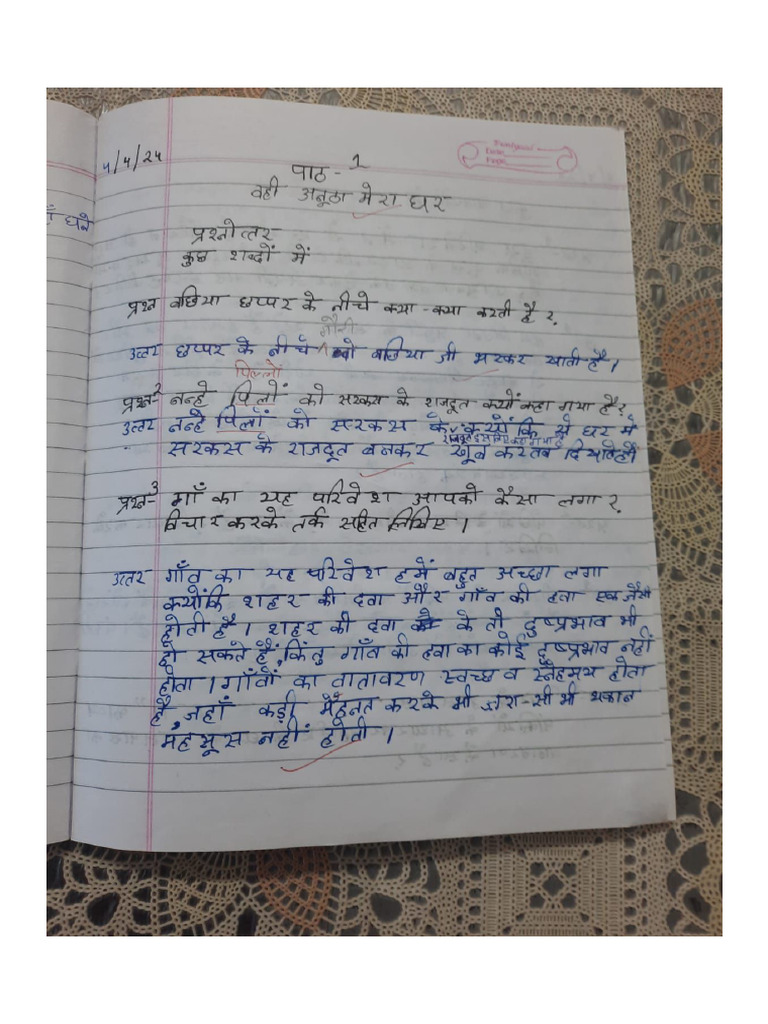 4/4/24
पाठ - 1
वही अनूठा मेरा घर
प्रश्नोत्तर
कुछ शब्दों में
प्रश्न बछिया छप्पर के नीचे क्या-क्या करती है ?
गौरी
उत्तर छप्पर के नीचे बछिया जी भरकर खाती है।
पिल्लों
प्रश्न-2 नन्हे पिलों को सरकस के राजदूत क्यों कहा गया है ?
उत्तर नन्हे पिलों को सरकस के क्योंकि ये घर में
राजदूत इसलिए कहा गया है
सरकस के राजदूत बनकर खूब करतब दिखाते हैं
प्रश्न-3 गाँ का यह परिवेश आपको कैसा लगा ?
विचार करके तर्क सहित लिखिए।
उत्तर गाँव का यह परिवेश हमें बहुत अच्छा लगा
क्योंकि शहर की हवा और गाँव की हवा एक जैसी
होती है। शहर की हवा के तो दुष्प्रभाव भी
हो सकते हैं, किंतु गाँव की हवा का कोई दुष्प्रभाव नहीं
होता। गाँवों का वातावरण स्वच्छ व स्नेहमय होता
है, जहाँ कड़ी मेहनत करके भी ज़रा-सी भी थकान
महसूस नहीं होती।